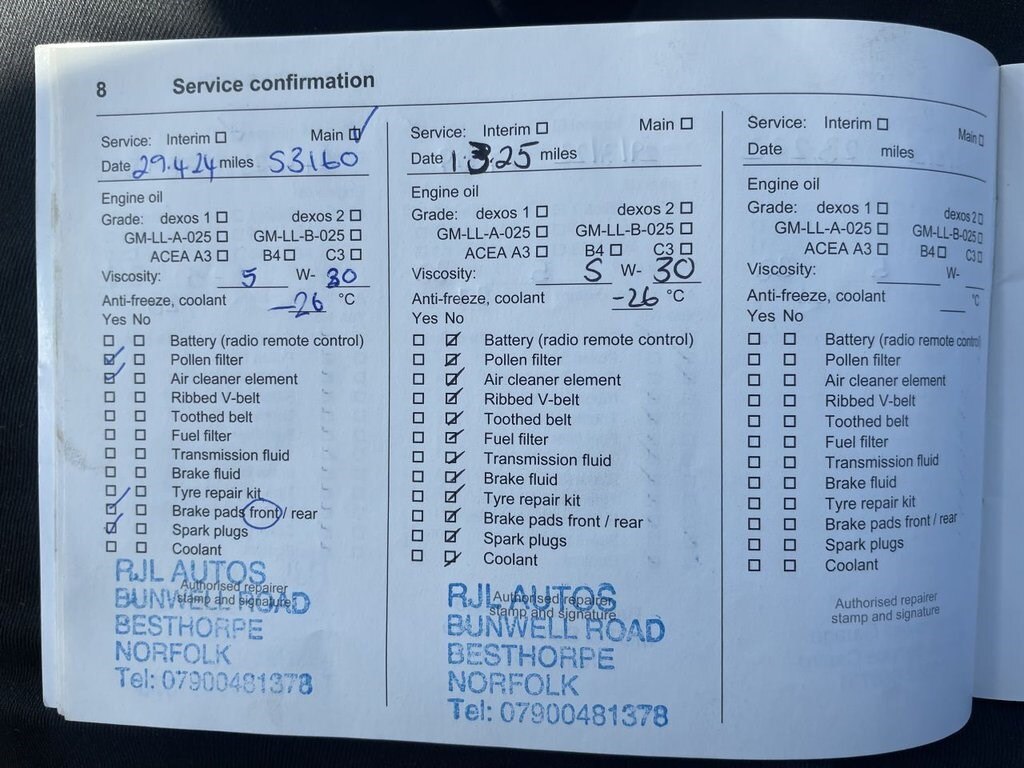 8 Service confirmation
Service: Interim Main
Date 29.4.24 miles 53160
Engine oil
Grade: dexos 1 dexos 2
GM-LL-A-025 GM-LL-B-025
ACEA A3 B4 C3
Viscosity: 5 W- 30
Anti-freeze, coolant -26 °C
Yes No
Battery (radio remote control)
Pollen filter
Air cleaner element
Ribbed V-belt
Toothed belt
Fuel filter
Transmission fluid
Brake fluid
Tyre repair kit
Brake pads front / rear
Spark plugs
Coolant
Authorised repairer
stamp and signature
RJL AUTOS
BUNWELL ROAD
BESTHORPE
NORFOLK
Tel: 07900481378
Service: Interim Main
Date 1.3.25 miles
Engine oil
Grade: dexos 1 dexos 2
GM-LL-A-025 GM-LL-B-025
ACEA A3 B4 C3
Viscosity: 5 W- 30
Anti-freeze, coolant -26 °C
Yes No
Battery (radio remote control)
Pollen filter
Air cleaner element
Ribbed V-belt
Toothed belt
Fuel filter
Transmission fluid
Brake fluid
Tyre repair kit
Brake pads front / rear
Spark plugs
Coolant
Authorised repairer
stamp and signature
RJL AUTOS
BUNWELL ROAD
BESTHORPE
NORFOLK
Tel: 07900481378
Service: Interim Main
Date miles
Engine oil
Grade: dexos 1 dexos 2
GM-LL-A-025 GM-LL-B-025
ACEA A3 B4 C3
Viscosity: W-
Anti-freeze, coolant °C
Yes No
Battery (radio remote control)
Pollen filter
Air cleaner element
Ribbed V-belt
Toothed belt
Fuel filter
Transmission fluid
Brake fluid
Tyre repair kit
Brake pads front / rear
Spark plugs
Coolant
Authorised repairer
stamp and signature